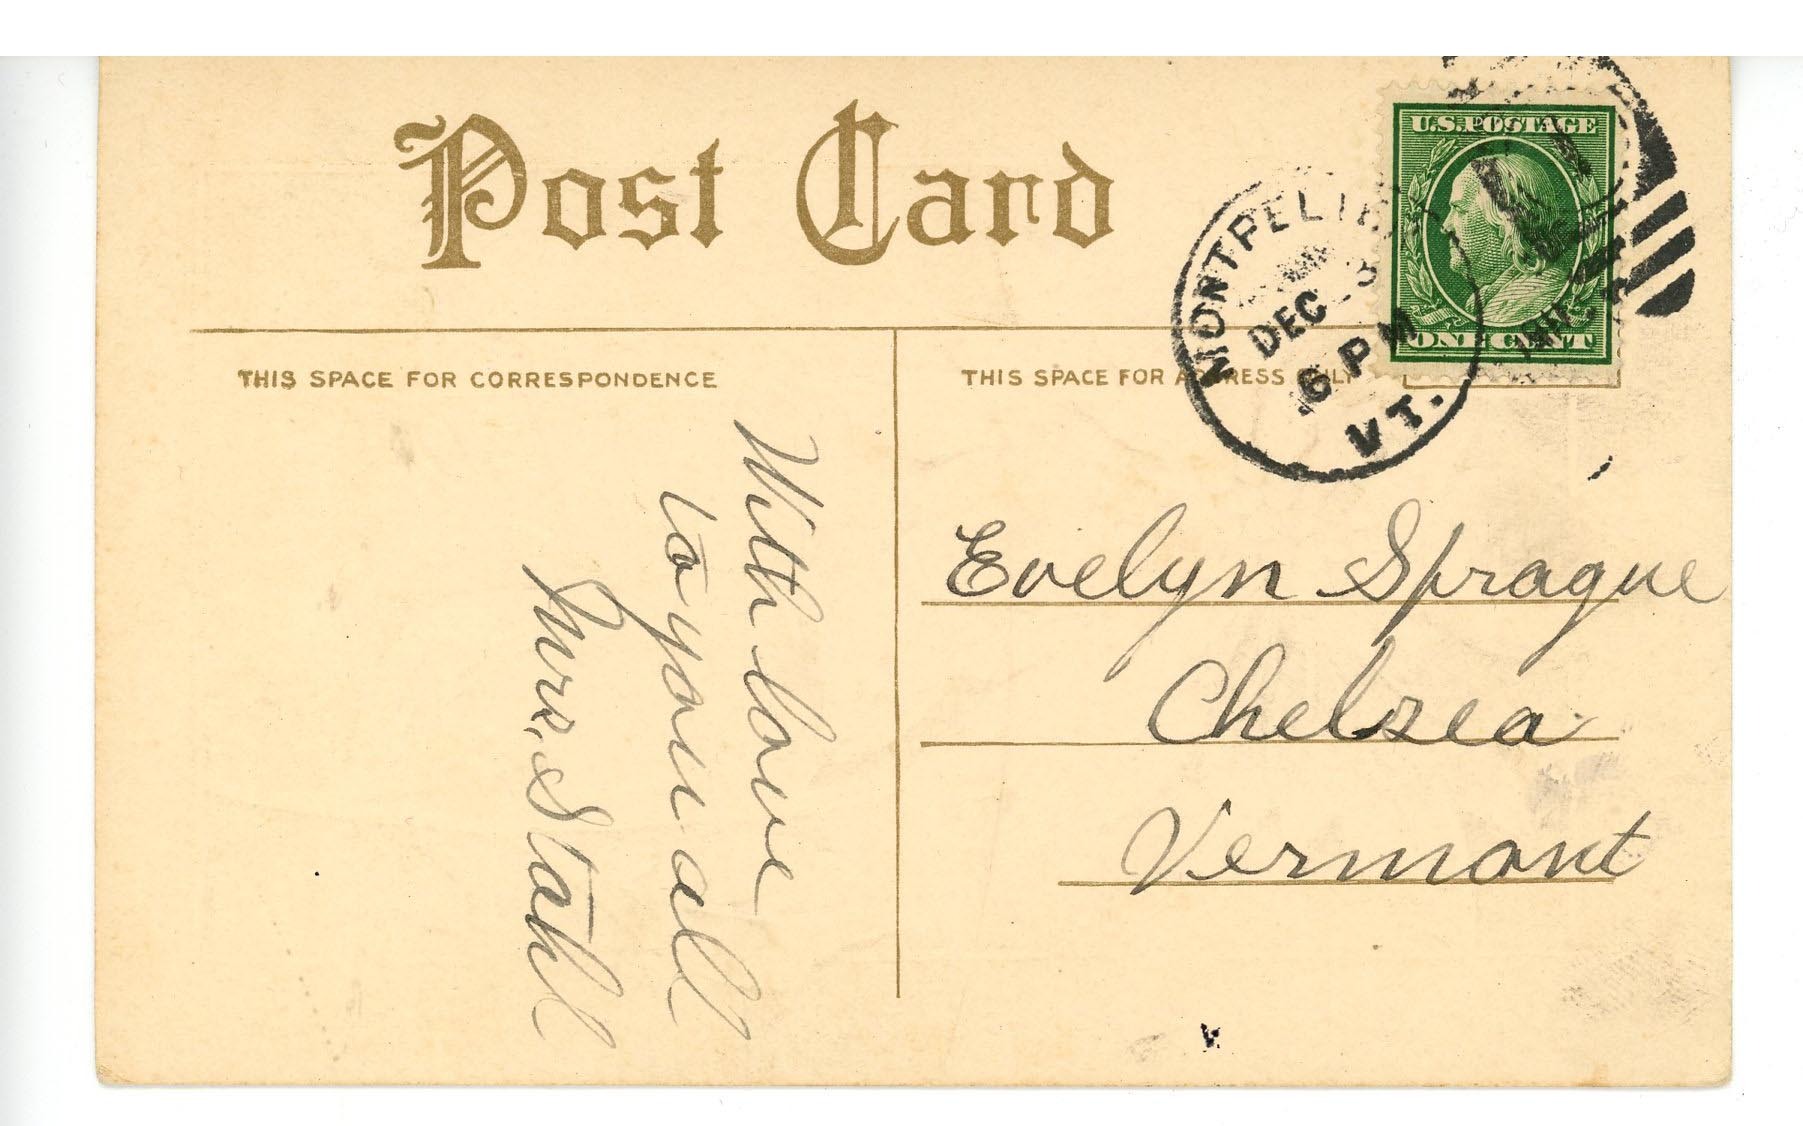 Post Card
THIS SPACE FOR CORRESPONDENCE
THIS SPACE FOR ADDRESS ONLY
U.S. POSTAGE
ONE CENT
MONTPELIER
DEC
6 PM
VT.
With love
to you all
Mrs. Stahl
Evelyn Sprague
Chelsea
Vermont